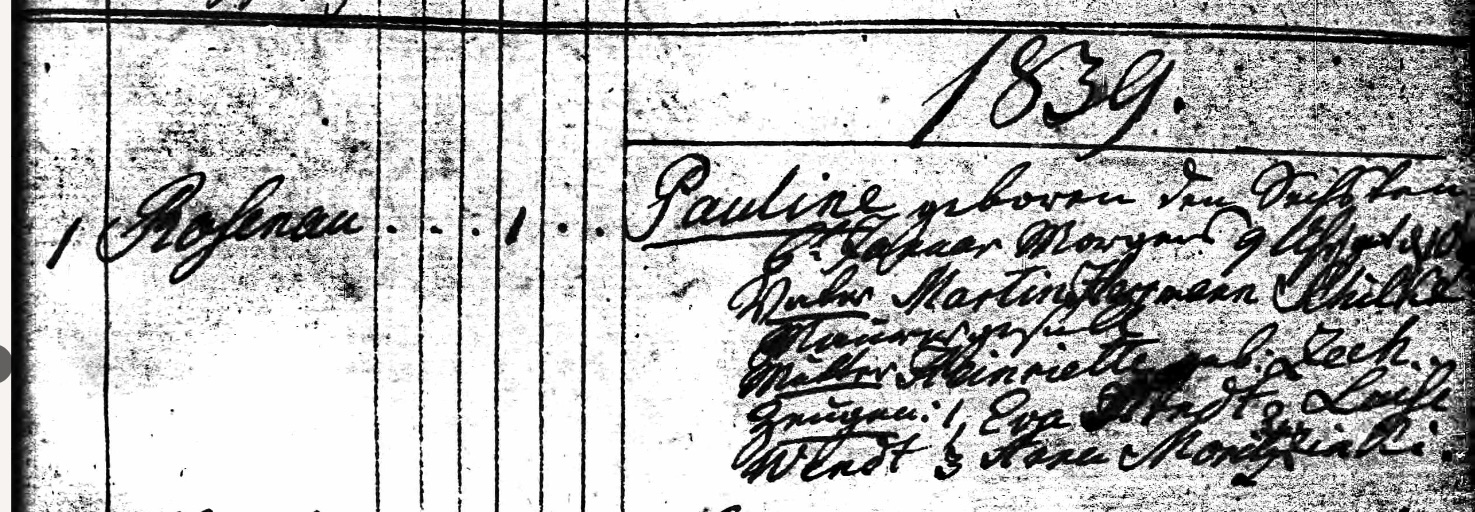 1839.
1 Rosenau . . . 1 . . Pauline geboren den Sechsten
6t. Januar Morgens 9 Uhr
Vater Martin Herrmann Schulke
Maurergesell
Mutter Heinriette geb. Zech.
Zeugen: 1, Eva 2, Luise
Wendt 3 Anna